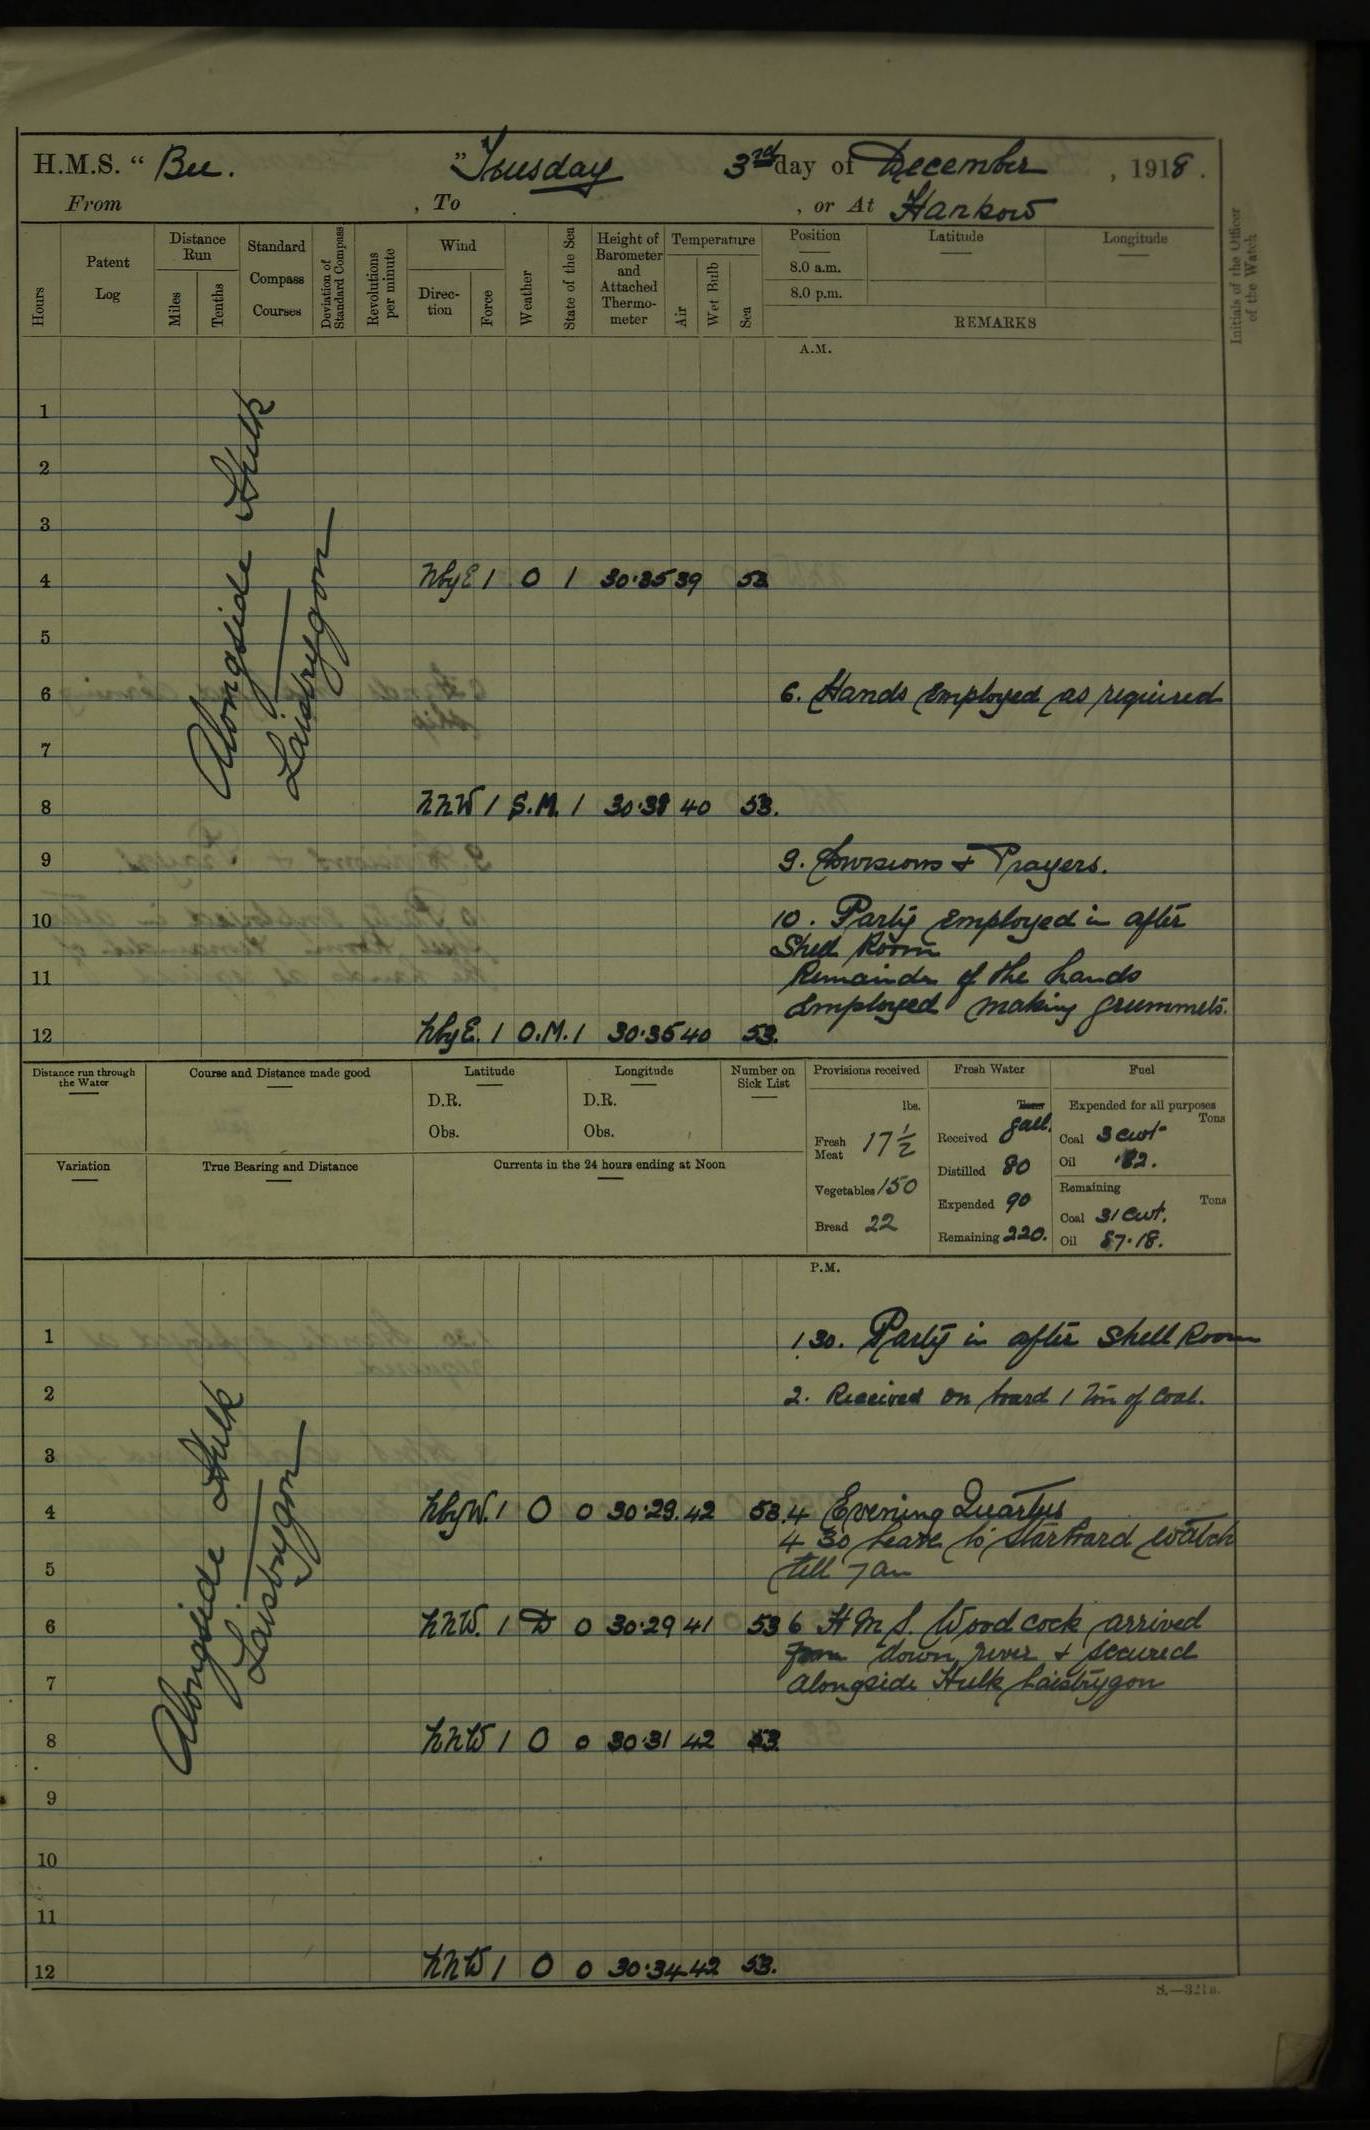 H.M.S. “ Bee. ” Tuesday 3rd day of December , 1918 .
From , To , or At Hankow
Hours
Patent Log
Distance Run
Miles
Tenths
Standard Compass Courses
Deviation of Standard Compass
Revolutions per minute
Wind
Direction
Force
Weather
State of the Sea
Height of Barometer and Attached Thermometer
Temperature
Air
Wet Bulb
Sea
Position
8.0 a.m.
8.0 p.m.
Latitude
Longitude
REMARKS
Initials of the Officer of the Watch
A.M.
Alongside Hulk
Laistrygon
1
2
3
4 NbyE 1 O 1 30·35 39 53
5
6 6. Hands employed as required
7
8 NNW 1 S.M. 1 30·38 40 53.
9 9. Divisions & Prayers.
10 10. Party employed in after
Shell Room
11 Remainder of the hands
employed making grummets.
12 NbyE. 1 O.M. 1 30·35 40 53.
Distance run through the Water
Course and Distance made good
Latitude
D.R.
Obs.
Longitude
D.R.
Obs.
Number on Sick List
Provisions received
lbs.
Fresh Meat 17 1/2
Vegetables 150
Bread 22
Fresh Water
Tons
gall.
Received
Distilled 80
Expended 90
Remaining 220.
Fuel
Expended for all purposes
Tons
Coal 3 cwt
Oil ·82.
Remaining
Tons
Coal 31 cwt.
Oil 87·18.
Variation
True Bearing and Distance
Currents in the 24 hours ending at Noon
P.M.
Alongside Hulk
Laistrygon
1 1 30. Party in after Shell Room
2 2. Received on board 1 Ton of Coal.
3
4 NbyW. 1 O 0 30·29. 42 53. 4 Evening Quarters
4 30 Leave to Starboard Watch
5 till 7 am
6 NNW. 1 D 0 30·29 41 53 6 H M S. Woodcock arrived
from down river & secured
7 alongside Hulk Laistrygon
8 NNW 1 O 0 30·31 42 53.
9
10
11
12 NNW 1 O 0 30·34 42 53.
S.—321a.